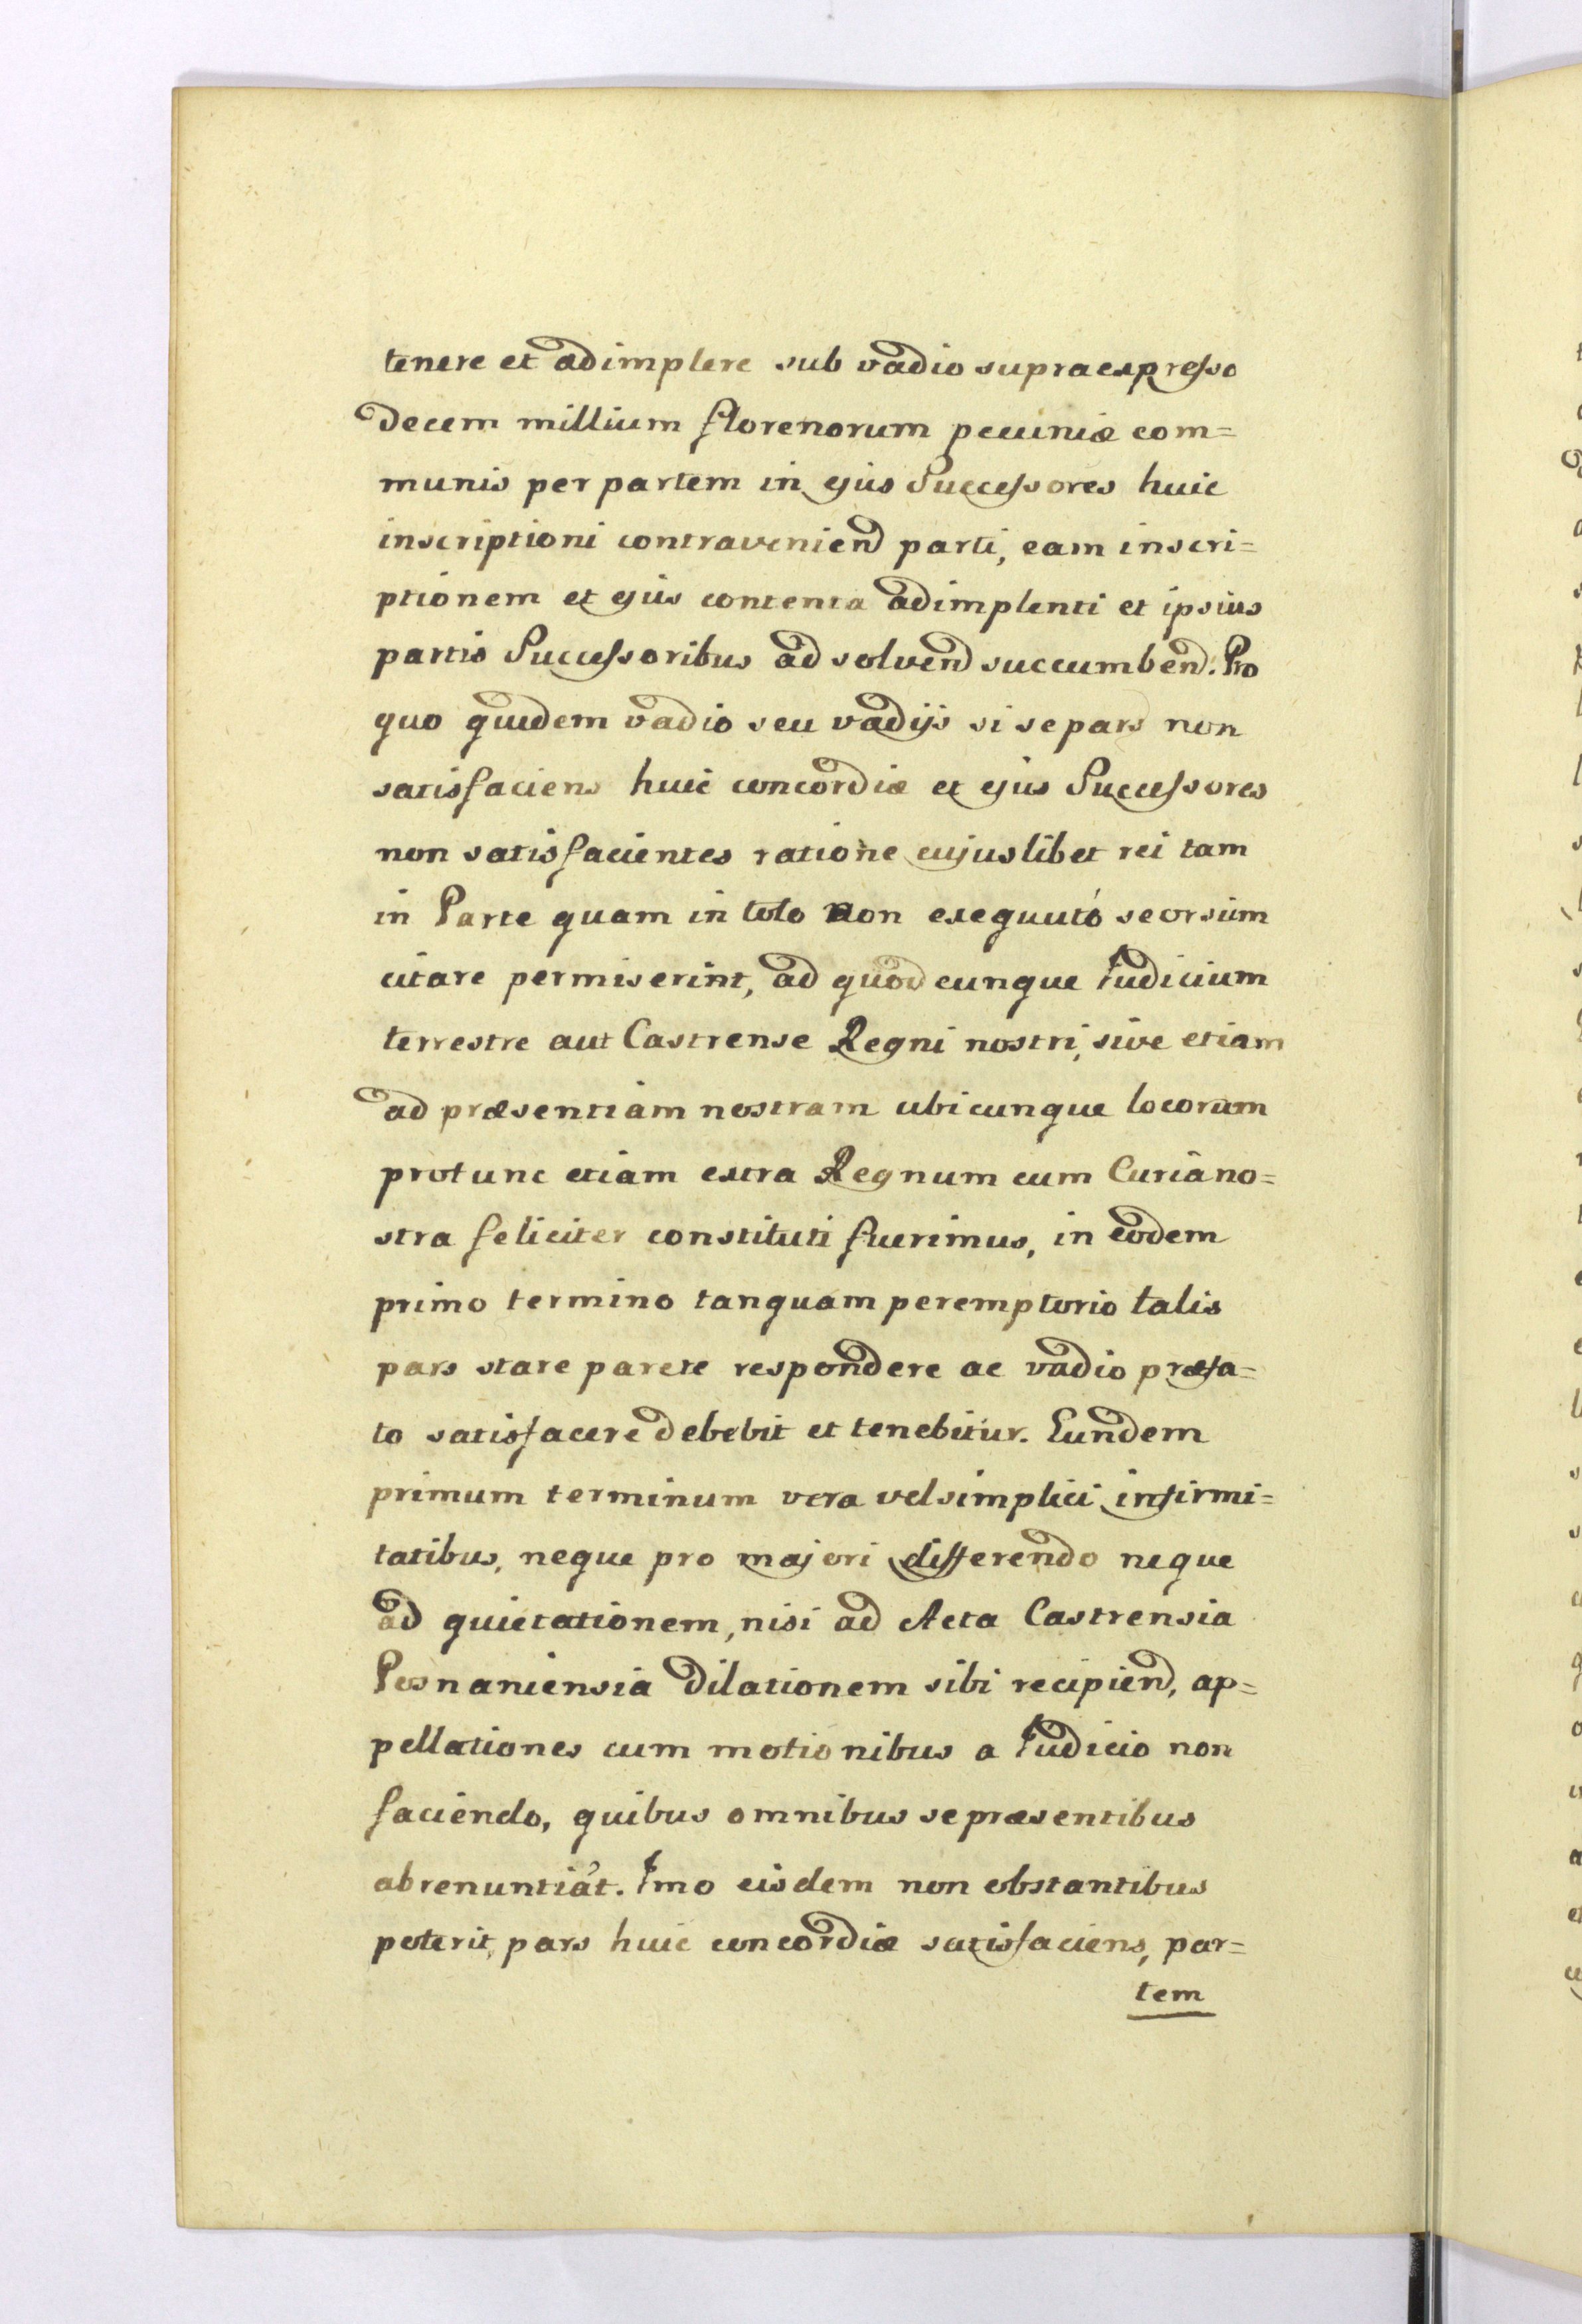 tenere et adimplere sub vadio supraexpresso
decem millium florenorum pecuniæ com=
munis per partem in ejus Successores huic
inscriptioni contraveniend parti, eam inscri=
ptionem et ejus contenta adimplenti et ipsius
partis Successoribus ad solvend succumbend. Pro
quo quidem vadio seu vadijs si se pars non
satisfaciens huic concordiæ et ejus Successores
non satisfacientes ratione cujuslibet rei tam
in Parte quam in toto non exequuto seorsum
citare permiserint, ad quodcunque Iudicium
terrestre aut Castrense Regni nostri, sive etiam
ad præsentiam nostram ubicunque locorum
protunc etiam extra Regnum cum Curia no=
stra feliciter constituti fuerimus, in eodem
primo termino tanquam peremptorio talis
pars stare parere respondere ac vadio præfa=
to satisfacere debebit et tenebitur. Eundem
primum terminum vera vel simplici infirmi=
tatibus, neque pro majori differendo neque
ad quietationem, nisi ad Acta Castrensia
Posnaniensia dilationem sibi recipiend, ap=
pellationes cum motionibus a Iudicio non
faciendo, quibus omnibus se præsentibus
abrenuntiat. Imo eisdem non obstantibus
poterit, pars huic concordiæ satisfaciens, par=
tem